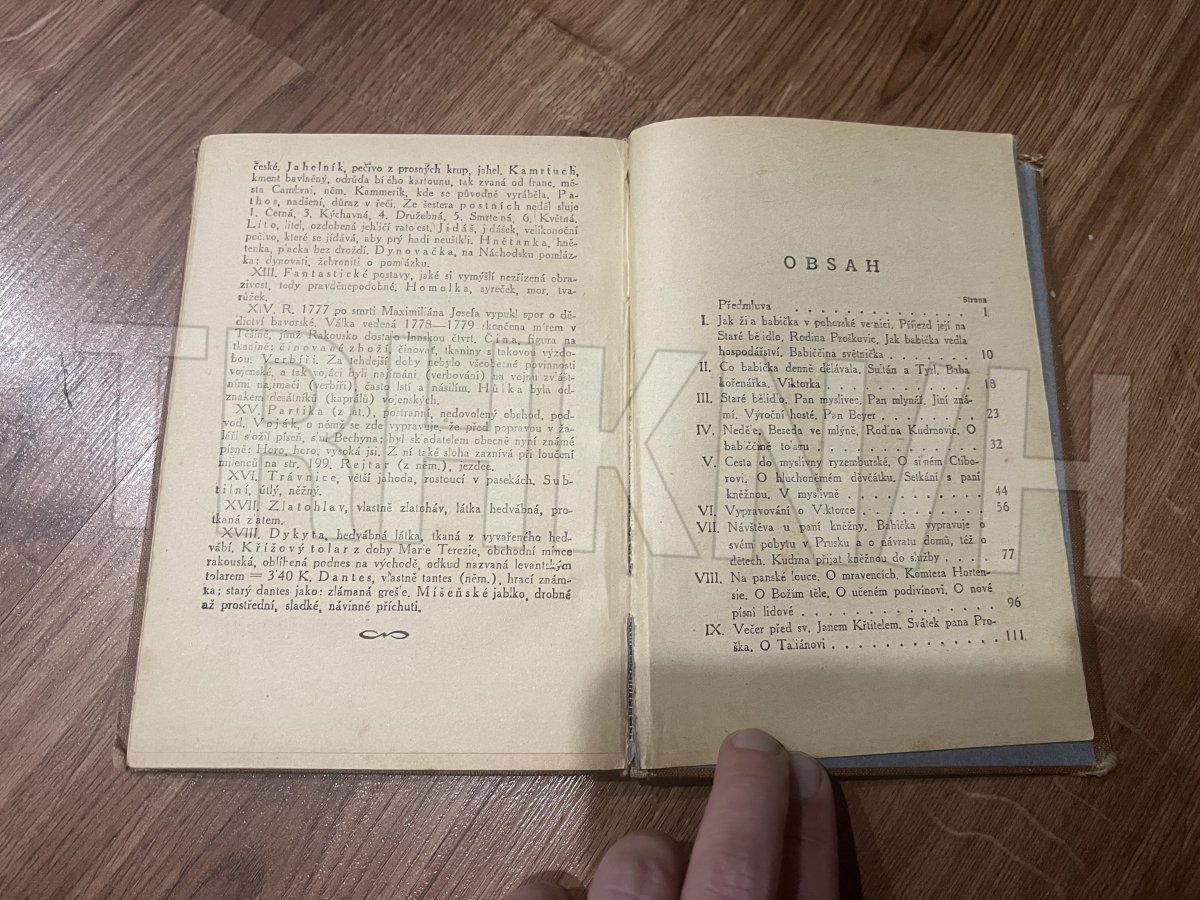 české. Jahelník, pečivo z prosných krup, jahel. Kamrtuch,
kment bavlněný, odrůda bí ého kartounu, tak zvaná od franc. mě-
sta Cambrai, něm. Kammerik, kde se původně vyráběla. Pa-
thos, nadšení, důraz v řeči. Ze šestera postních neděl sluje
1. Černá, 3. Kýchavná, 4. Družebná, 5. Smrte ná, 6. Květná.
Líto, litel, ozdobená jehličí rato est. Jidáš, j dášek, velikonoční
pečivo, které se jídává, aby prý hadi neuštkli. Hnětanka, hně-
tenka, p acka bez droždí. Dynovačka, na Náchodsku pomláz-
ka; dynovati, žebroniti o pom ázku.
XIII. Fantastické postavy, jaké si vymýšlí nezřízená obra-
zivost, tedy pravděnepodobné. Homolka, syreček, mor. tva-
růžek.
XIV. R. 1777 po smrti Maximiliána Josefa vypukl spor o dě-
dictví bavorské. Válka vedená 1778—1779 skončena m rem v
Těšíně, jímž Rakousko dosta o Innskou čtvrt. Čina, figura na
tkanině; činované zboží, činovat, tkaniny s takovou výzdo-
bou. Verbíři. Za tehdejší doby nebylo všeobecné povinnosti
vojenské, a tak vojáci byli najímáni (verbováni) na vojnu zv ášt-
ními najímači (verbíři) často lstí a násilím. Hůlka byla od-
znakem desátníků (kaprálů) vojenských.
XV. Partika (z at.), postranní, nedovolený obchod, pod-
vod. Voják, o němž se zde vypravuje, že před popravou v ža-
láři s ožil píseň, s uk Bechyna; byl sk adatelem obecně nyní známé
písně: Horo, horo, vysoká jsi. Z ní také sloha zaznívá při loučení
milenců na str. 199. Rejtar (z něm.), jezdec.
XVI. Trávnice, větší jahoda, rostoucí v pasekách. Sub-
tilní, útlý, něžný.
XVII. Zlatohlav, vlastně zlatoháv, látka hedvábná, pro-
tkaná z atem.
XVIII. Dykyta, hedvábná látka, tkaná z vyvařeného hed-
vábí. Křížový tolar z doby Mar e Terezie, obchodní mince
rakouská, oblíbená podnes na východě, odkud nazvaná levantským
tolarem = 3˙40 K. Dantes, vlastně tantes (něm.), hrací znám-
ka; starý dantes jako: zlámaná greš e. Míšeňské jablko, drobné
až prostřední, sladké, návinné příchuti.
OBSAH
Strana
Předmluva . . . . . . . . . . . . . . . . 1
I. Jak ži a babička v pohorské ve nici. Příjezd její na
Staré bělidlo, Rodina Proškovic, Jak babička vedla
hospodářství. Babiččina světnička . . . . . . . . 10
II. Co babička denně dělávala. Sultán a Tyrl, Baba
kořenářka. Viktorka . . . . . . . . . . . . 18
III. Staré bělidlo. Pan myslivec. Pan mlynář. Jiní zná-
mí. Výroční hosté. Pan Beyer . . . . . . . . 23
IV. Neděle. Beseda ve mlýně, Rodina Kudrnovic. O
babiččině to aru . . . . . . . . . . . . . 32
V. Cesta do myslivny ryzemburské. O si ném Ctibo-
rovi, O hluchoněmém děvčátku. Setkání s paní
kněžnou. V myslivně . . . . . . . . . . . 44
VI. Vypravování o Viktorce . . . . . . . . . . 56
VII. Návštěva u paní kněžny. Babička vypravuje o
svém pobytu v Prusku a o návratu domů, též o
dětech. Kudrna přijat kněžnou do služby . . . . 77
VIII. Na panské louce. O mravencích. Komtesa Horten-
sie. O Božím těle. O učeném podivínovi. O nové
písni lidové . . . . . . . . . . . . . . . 96
IX. Večer před sv. Janem Křtitelem. Svátek pana Pro-
ška. O Taliánovi . . . . . . . . . . . . . 111
TRHKNIH